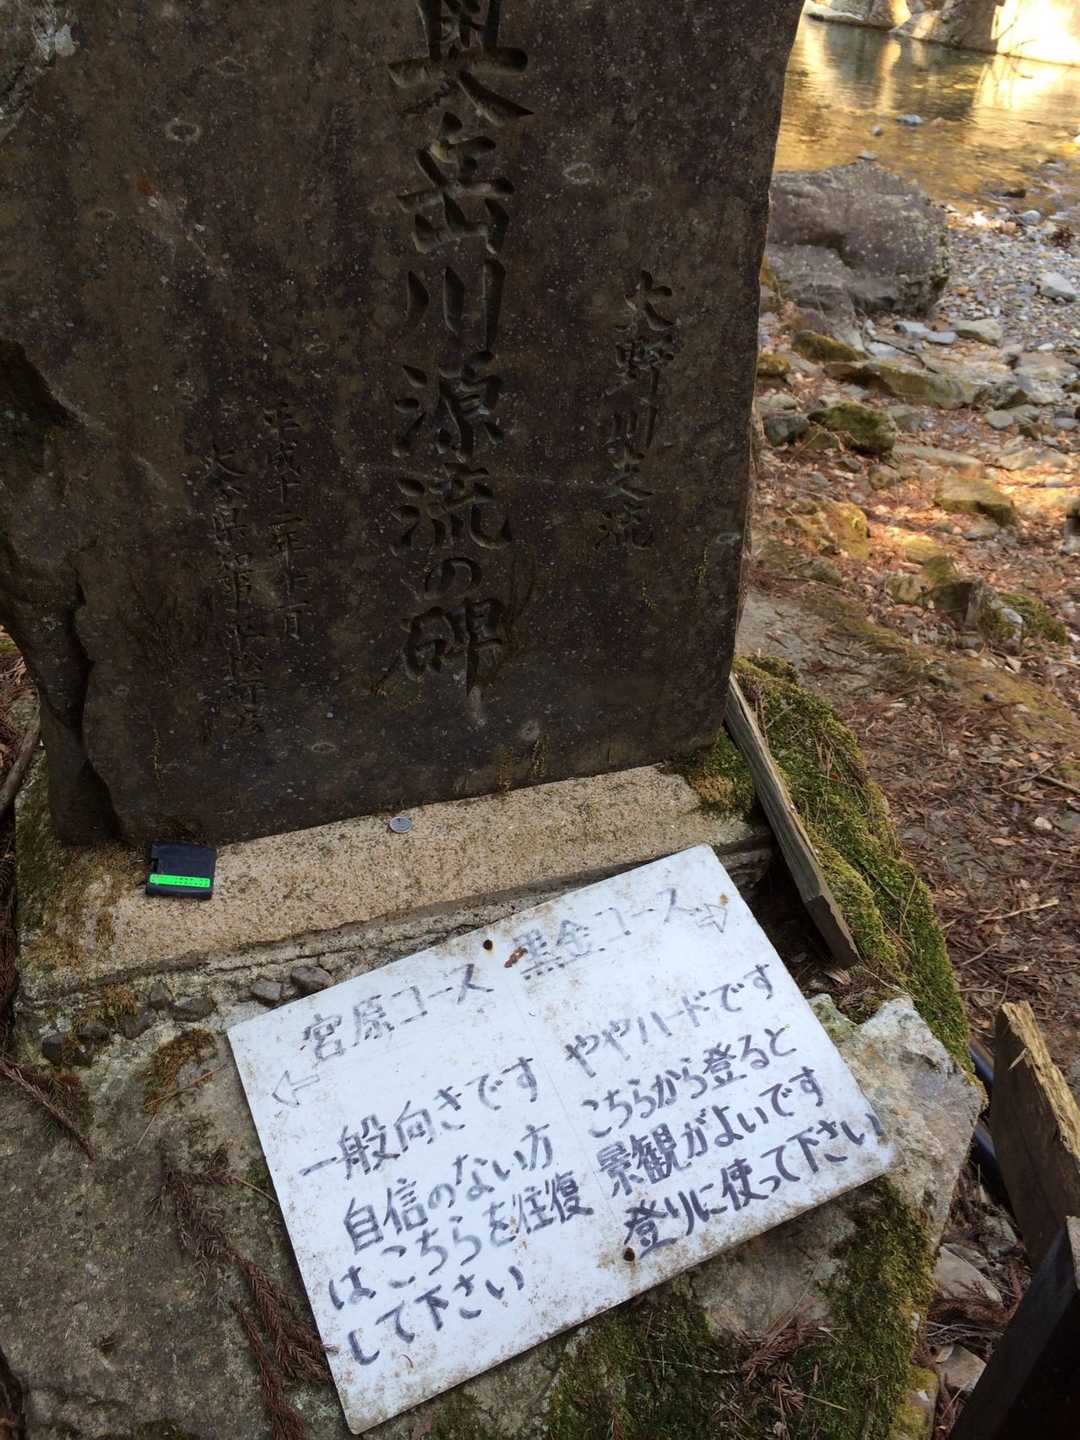 大野川支流
奥岳川源流の碑
平成十二年十一月
宮原コース
一般向きです
自信のない方
はこちらを往復
して下さい
黒金コース
ややハードです
こちらから登ると
景観がよいです
登りに使って下さい